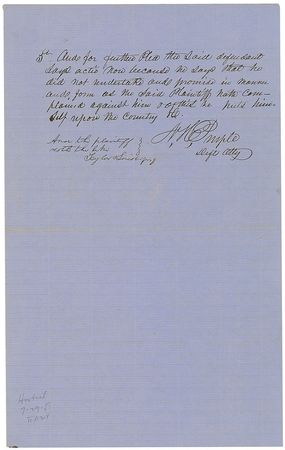 5th And for further Plea the said defendant
says actio non because he says that he
did not undertake and promise in manner
and form as the said Plaintiff hath com-
plained against him & of this he puts him-
self upon the Country &c.
And the plaintiff
doth the like
N. H. Purple
Defts Atty